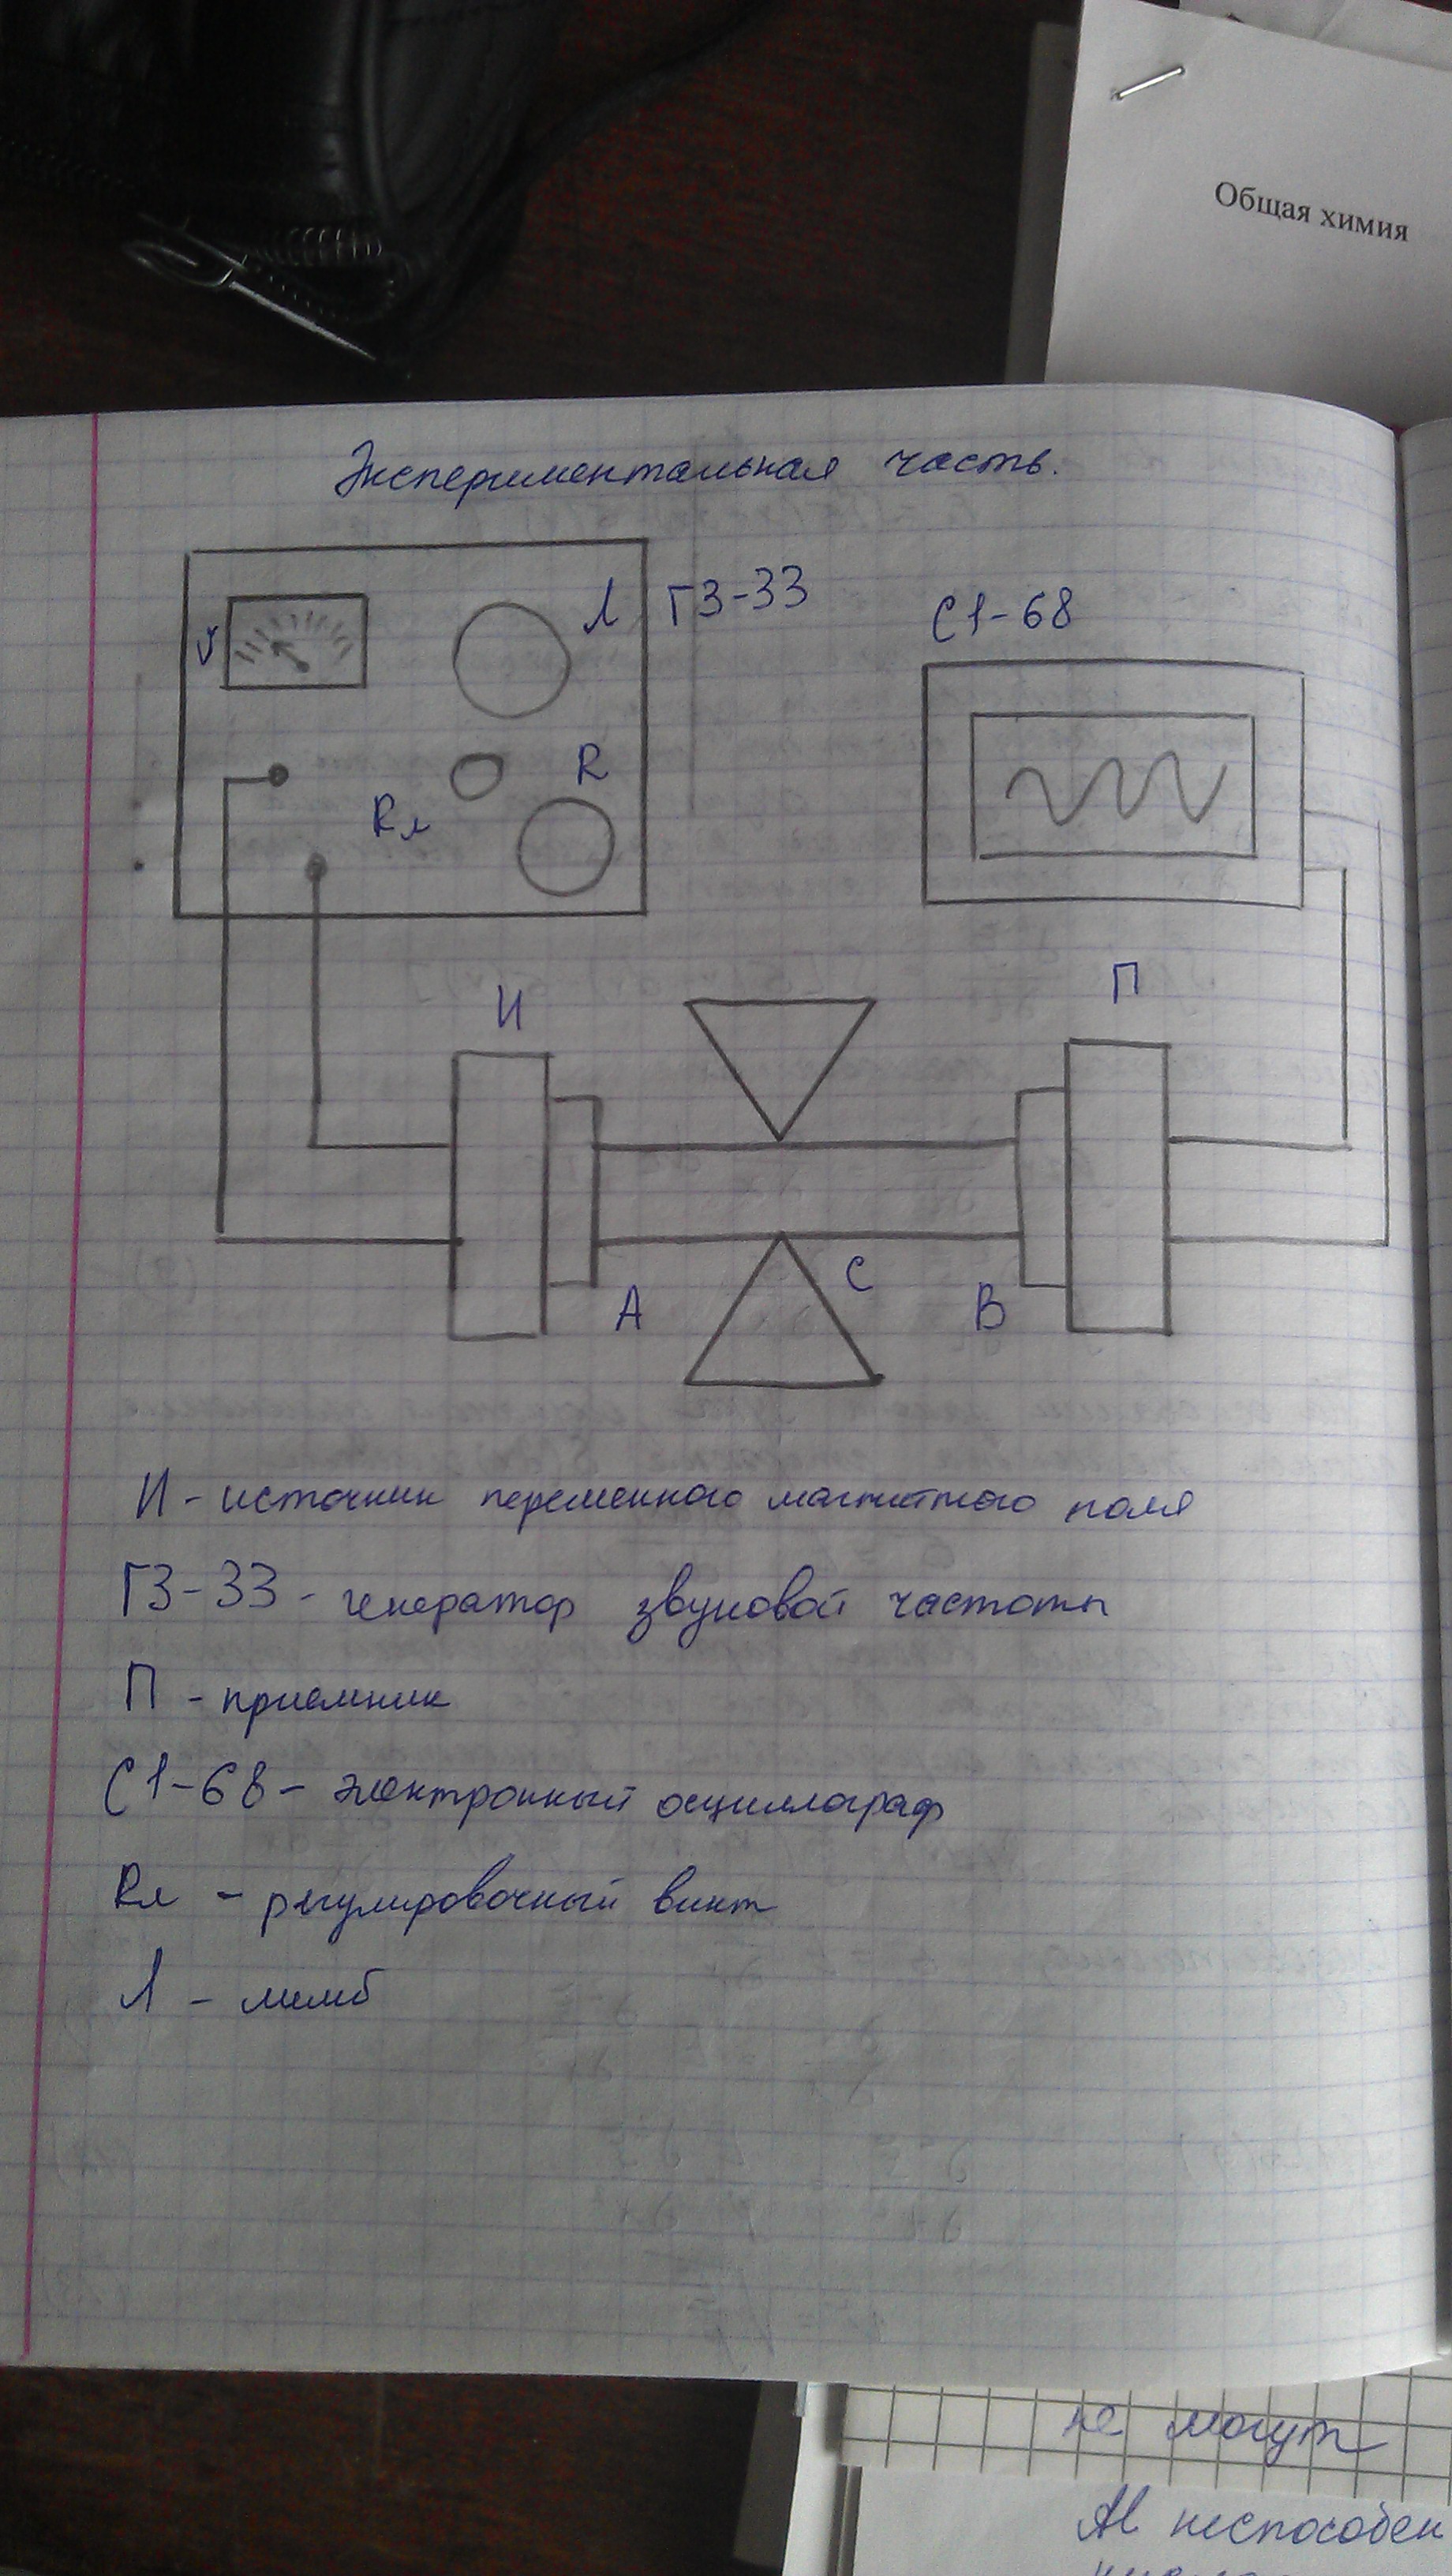 Общая химия
Экспериментальная часть.
Л
ГЗ-33
С1-68
V
R
Rл
И
П
А
С
В
И - источник переменного магнитного поля
ГЗ-33 - генератор звуковой частоты
П - приемник
С1-68 - электронный осциллограф
Rл - регулировочный винт
Л - лимб
не могут
Al неспособен